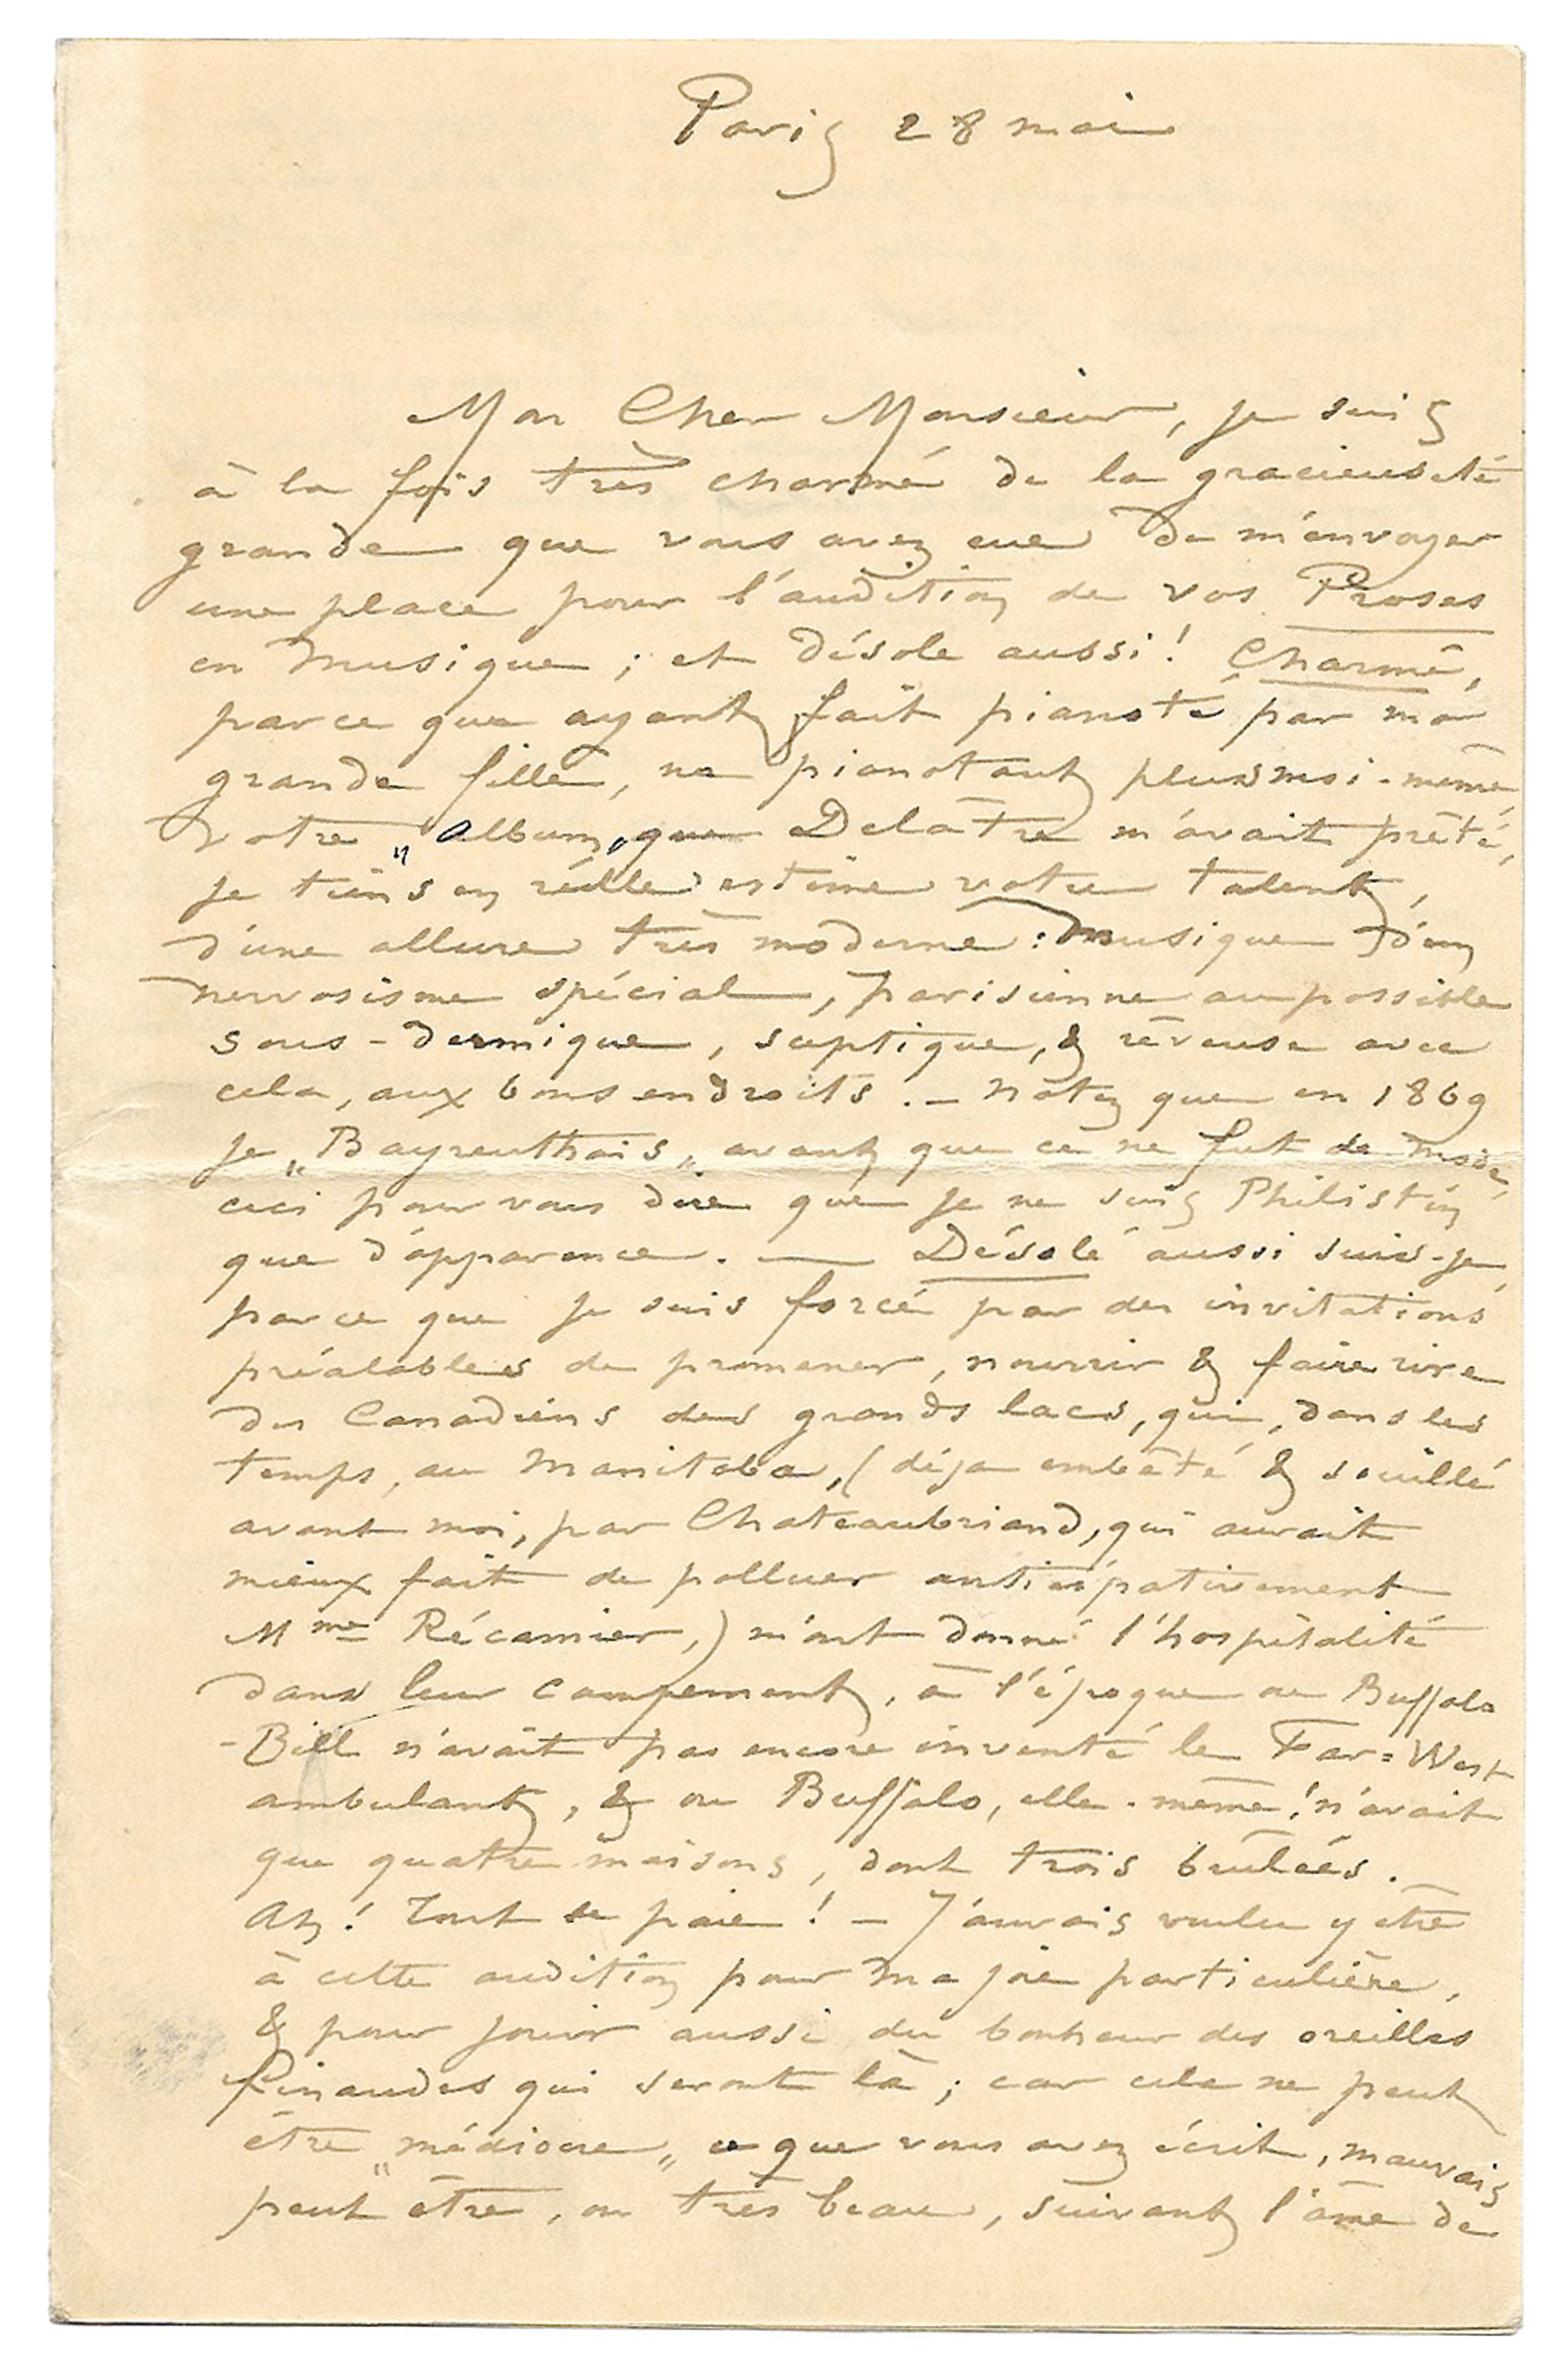 Paris 28 mai
Mon Cher Monsieur, je suis
à la fois très charmé de la gracieuseté
grande que vous avez eue de m'envoyer
une place pour l'audition de vos Proses
en musique ; et désolé aussi ! Charmé,
parce que ayant fait pianoté par ma
grande fille, ne pianotant plus moi-même,
votre „Album„ que Delâtre m'avait prêté,
je tiens en réelle estime votre talent,
d'une allure très moderne : musique d'un
nervosisme spécial, parisienne au possible
sous-dermique, sceptique, & rêveuse avec
cela, aux bons endroits. _ Notez que en 1869
je „Bayreuthais„ avant que ce ne fut de mode,
ceci pour vous dire que je ne suis Philistin
que d'apparence. — Désolé aussi suis-je,
parce que je suis forcé par des invitations
préalables de promener, nourrir & faire rire
des Canadiens des grands lacs, qui, dans les
temps, au Manitoba, ( déja embêté & souillé
avant moi, par Chateaubriand, qui aurait
mieux fait de polluer anticipativement
Mme Récamier,) m'ont donné l'hospitalité
dans leur campement, à l'époque ou Buffalo
-Bill n'avait pas encore inventé le Far=West
ambulant, & ou Buffalo, elle-même ! n'avait
que quatre maisons, dont trois brûlées.
Ah ! Tout se paie ! _ J'aurais voulu y être
à cette audition pour ma joie particulière,
& pour jouir aussi du bonheur des oreilles
finaudes qui seront là ; car cela ne peut
être „médiocre„ ce que vous avez écrit, mauvais
peut être, ou très beau, suivant l'âme de